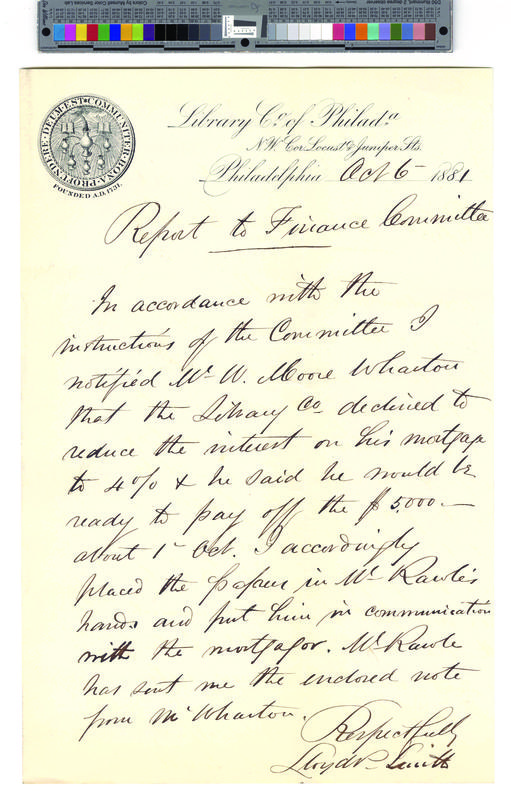 COMMUNITER BONA PROFUNDERE DEUM EST
FOUNDED A.D. 1731.
Library Co. of Philada.
N.W. Cor. Locust & Juniper Sts.
Philadelphia Oct 6 1881
Report to Finance Committee
In accordance with the
instructions of the Committee I
notified Mr. W. Moore Wharton
that the Library Co declined to
reduce the interest on his mortgage
to 4% & he said he would be
ready to pay off the $5.000.—
about 1st Oct. I accordingly
placed the papers in Mr Rawle's
hands and put him in communication
with the mortgagor. Mr. Rawle
has sent me the enclosed note
from Mr Wharton.
Respectfully
Lloyd P. Smith